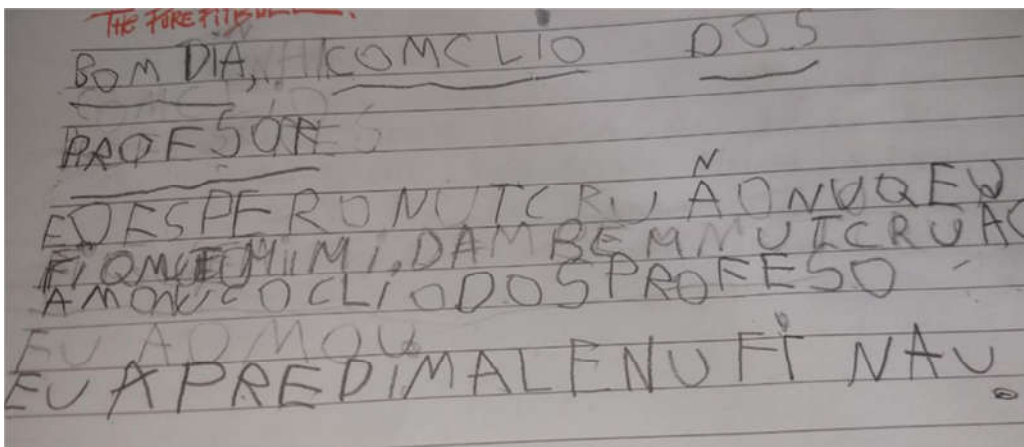 THE
BOM DIA, COMCLIO DOS
PROFSOR
EOESPERONUTCRUÃONUQEU
DAMBEMNUICRUAO
AMONICOCLIODOSPROFESO
EU AOMOU
EU APREDIMALENUFI NAU.